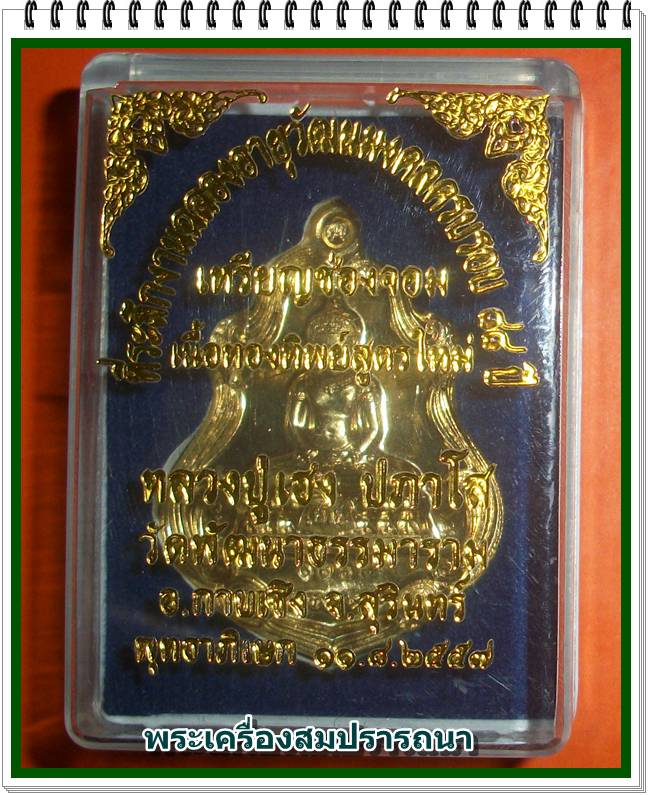 ที่ระลึกงานฉลองอายุวัฒนมงคลครบรอบ ๘๘ ปี
เหรียญช่องจอม
เนื้อทองทิพย์สูตรใหม่
หลวงปู่เฮง ปภาโส
วัดพัฒนาธรรมาราม
อ.กาบเชิง จ.สุรินทร์
พุทธาภิเษก ๑๑.๘.๒๕๕๗
พระเครื่องสมปรารถนา